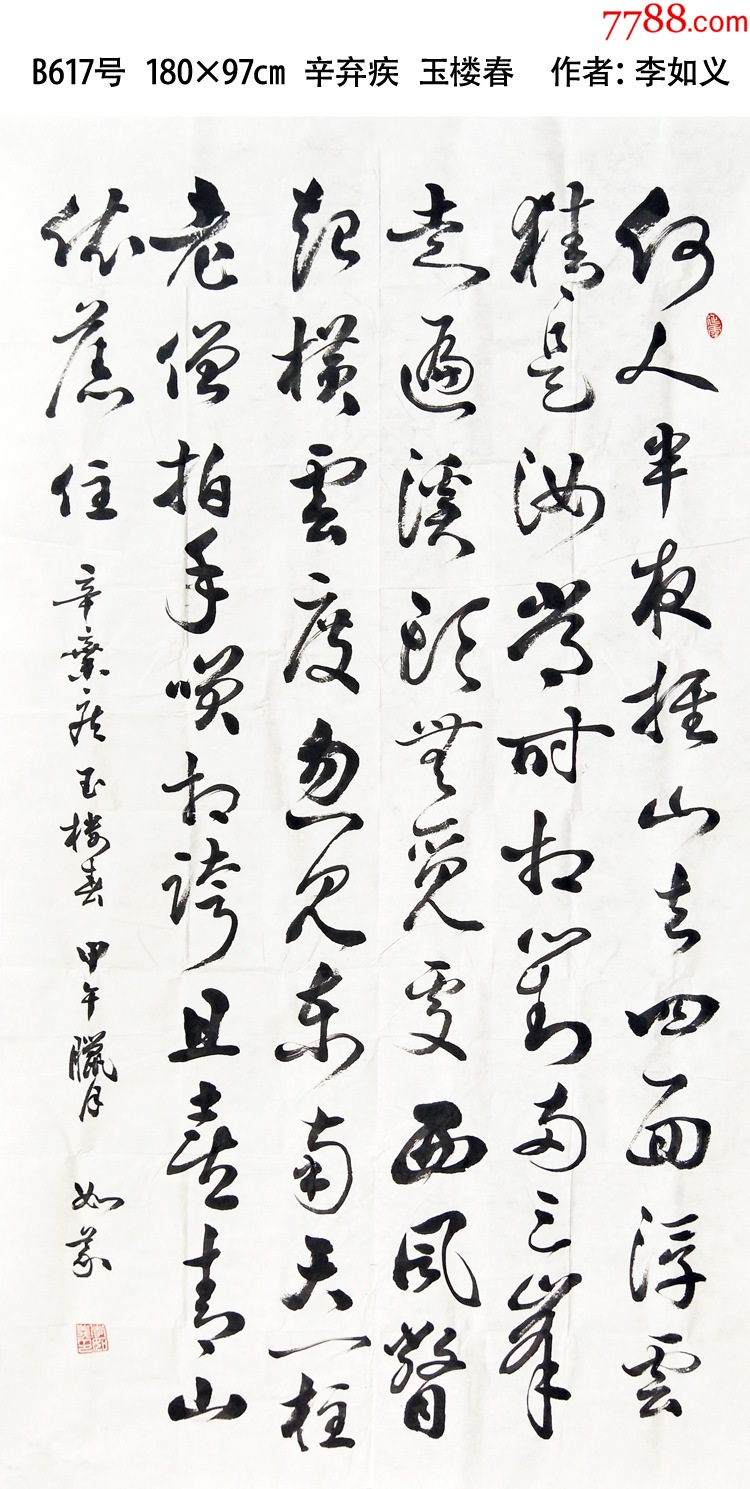 7788.com
B617号 180×97cm 辛弃疾 玉楼春 作者：李如义
何人半夜推山去四面浮雲
猜是汝常时相對两三峯
走遍溪頭無覓處西风瞥
起横雲度忽见东南天一柱
老僧拍手唉相誇且喜青山
依舊住
辛棄疾玉楼春 甲午臘月 如義